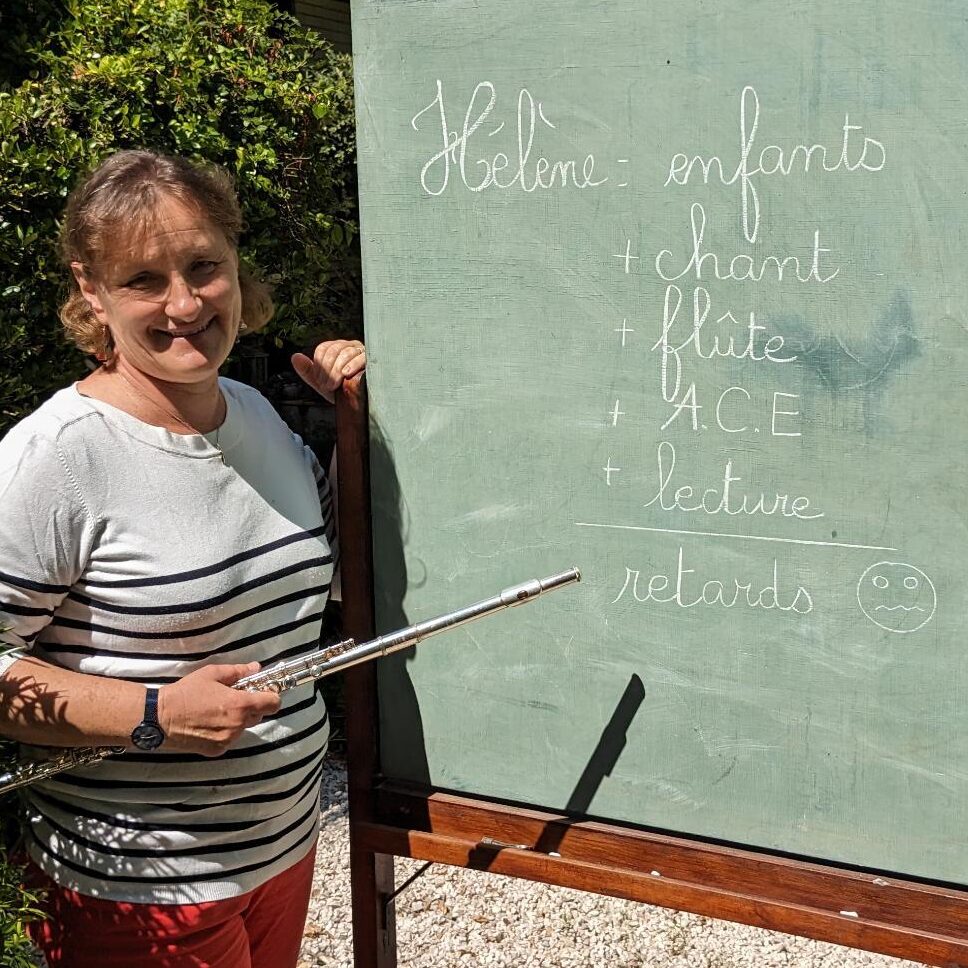 Hélène : enfants
+ chant
+ flûte
+ A.C.E
+ lecture
retards